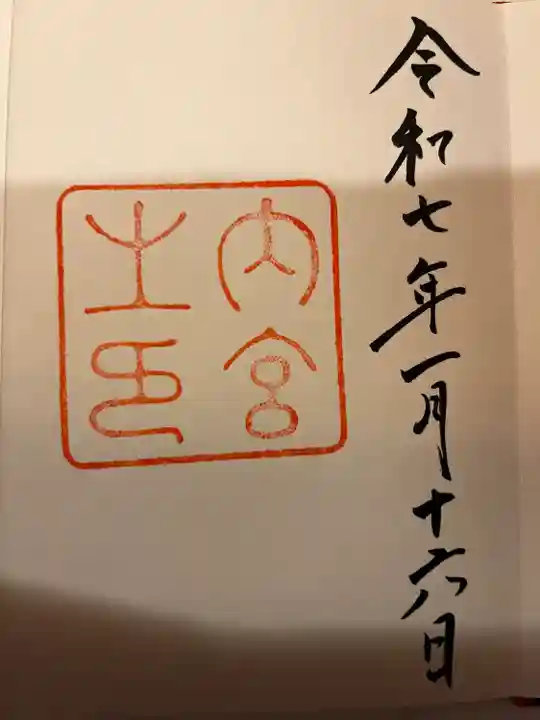 令和七年一月十六日
内宮
之印